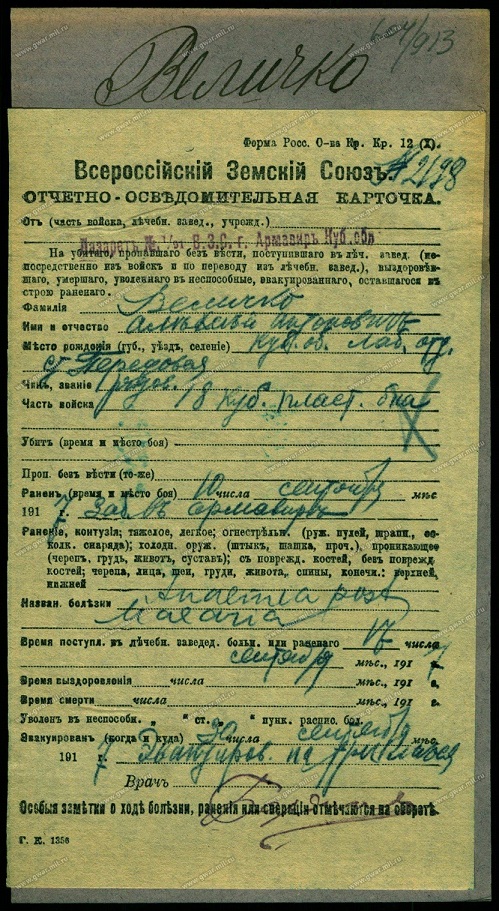 Величко
/913
Форма Росс. О-ва Кр. Кр. 12 (X).
Всероссійскій Земскій Союзъ.
№ 2198
ОТЧЕТНО-ОСВѢДОМИТЕЛЬНАЯ КАРТОЧКА.
Отъ (часть войска, лѣчебн. завед., учрежд.)
Лазаретъ № 1/81 В.З.С. г. Армавиръ Куб. обл.
На убитаго, пропавшаго безъ вѣсти, поступившаго въ лѣч. завед. (не-
посредственно изъ войскъ и по переводу изъ лѣчебн. завед.), выздоровѣв-
шаго, умершаго, уволеннаго въ неспособные, эвакуированнаго, оставшагося въ
строю раненаго.
Фамилія Величко
Имя и отчество
Мѣсто рожденія (губ., уѣздъ, селеніе) Куб. об. Лаб. отд.
ст. Передовая
Чинъ, званіе рядов.
Часть войска 8 Куб. пласт. бат.
Убитъ (время и мѣсто боя)
Проп. безъ вѣсти (то-же)
Раненъ (время и мѣсто боя) 10 числа сентября мѣс
191 7 г. Заб. въ Армавирѣ
Раненіе, контузія; тяжелое, легкое; огнестрѣльн. (руж. пулей, шрапн., ос-
колк. снаряда); холодн. оруж. (штыкъ, шашка, проч.), проникающее
(черепъ, грудь, животъ, суставъ); съ поврежд. костей, безъ поврежд.
костей; черепа, лица, шеи, груди, живота, спины, конечн.: верхней,
нижней
Назван. болѣзни Anaemia post
Malaria
Время поступл. въ лѣчебн. заведед. больн. или раненаго 17 числа
сентября мѣс., 191 7 г.
Время выздоровленія числа мѣс., 191 г.
Время смерти числа мѣс., 191 г.
Уволен въ неспособн. „ “ ст. „ “ пунк. распис. бол.
Эвакуированъ (когда и куда) 30 числа сентября мѣс.
191 7 г. Эвакуиров. на три мѣсяца
Врачъ
Особыя замѣтки о ходѣ болѣзни, раненія или операціи отмѣчаются на оборотѣ.
Г. К. 1356
www.gwar.mil.ru